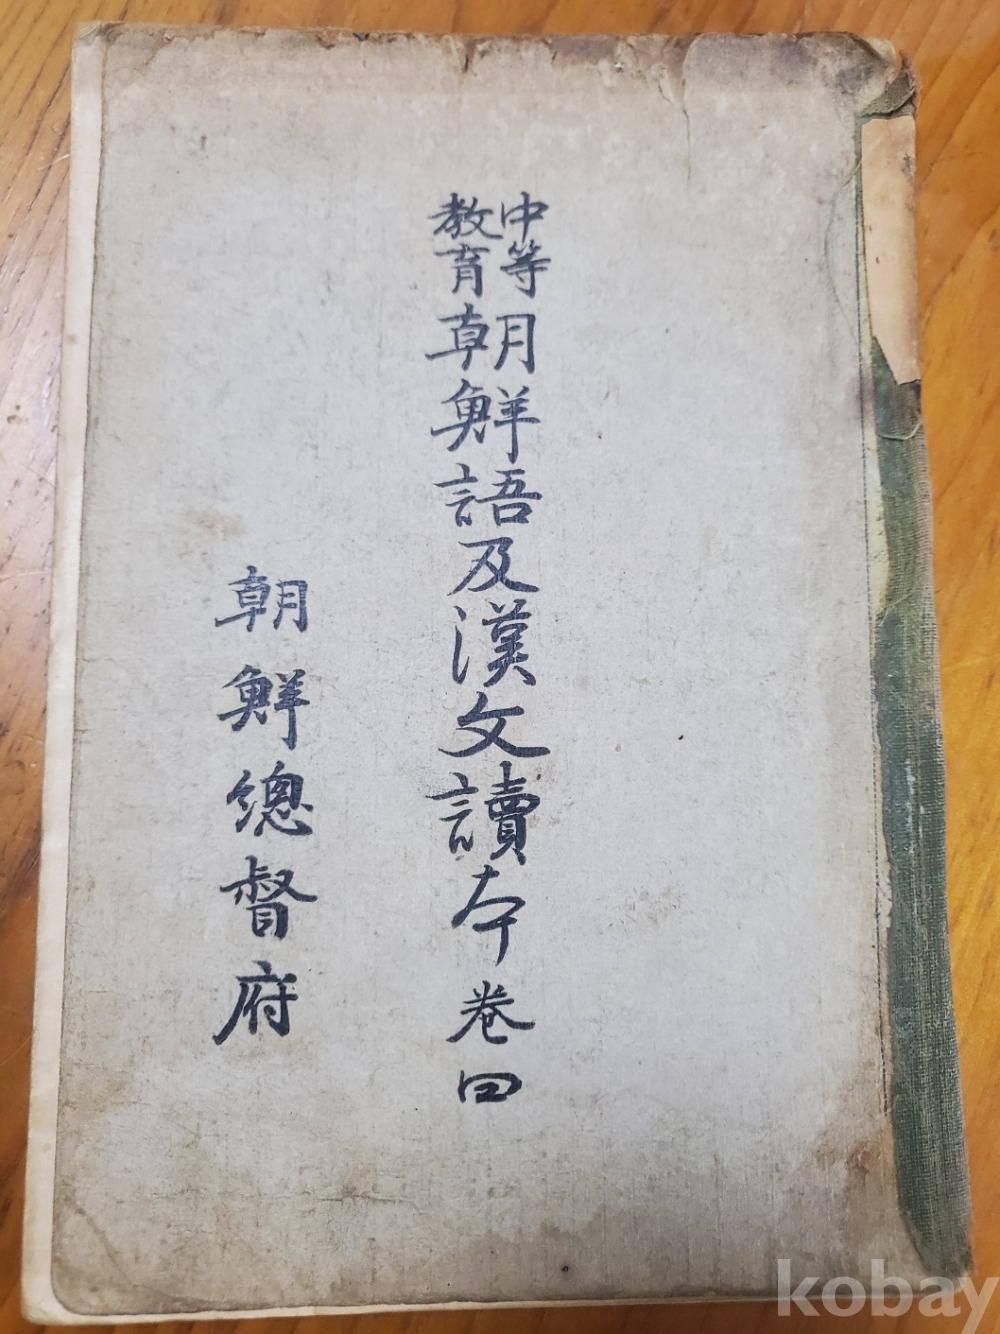 中等
教育
朝鮮語及漢文讀本 卷四
朝鮮總督府
kobay